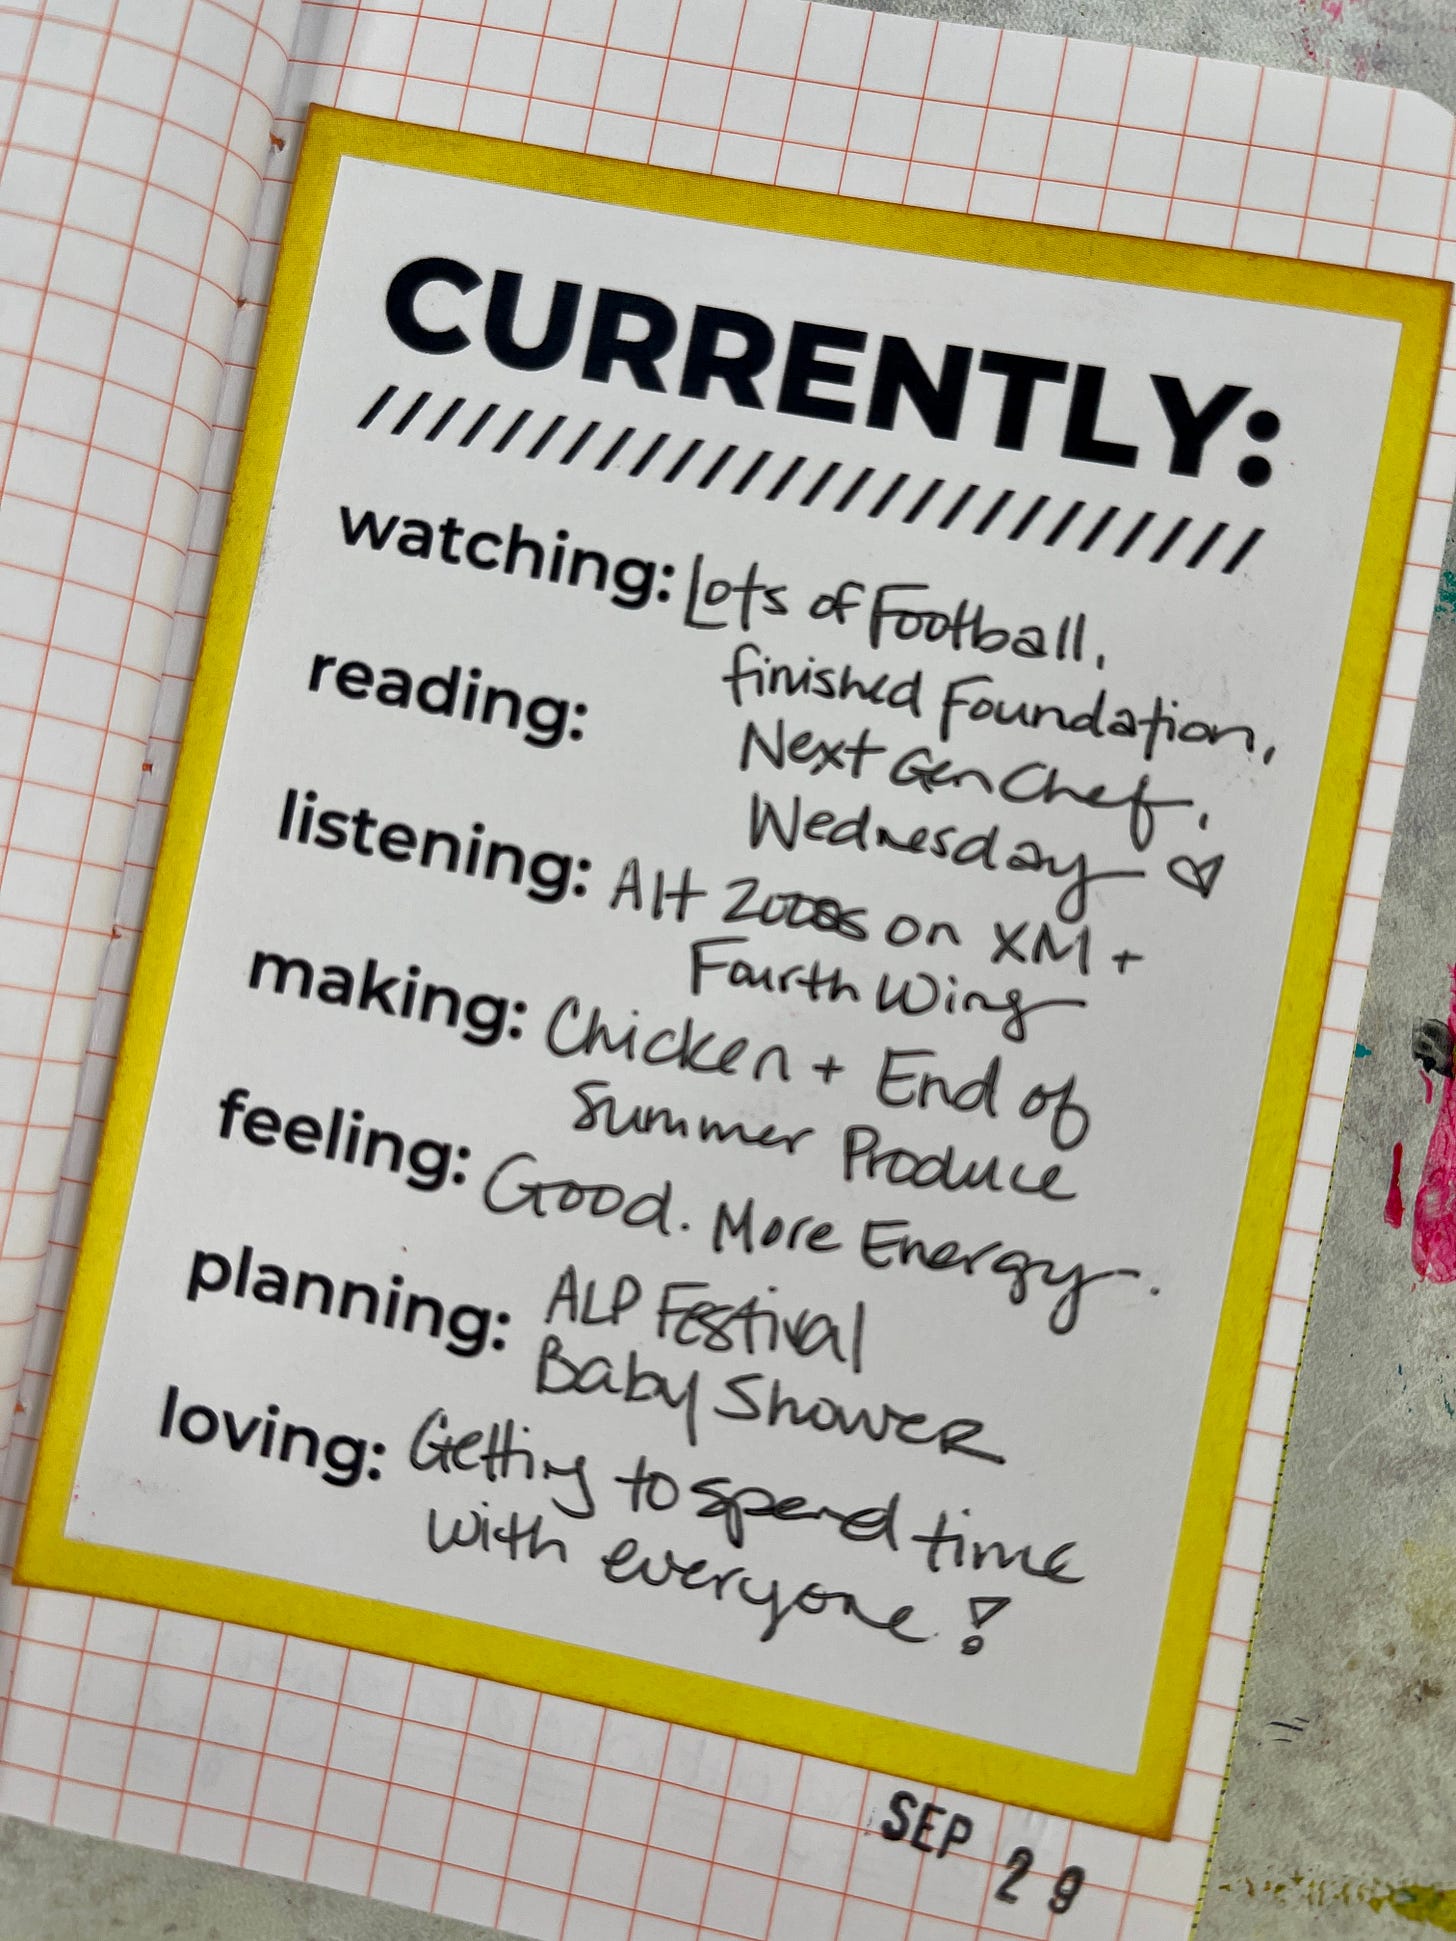 CURRENTLY:
watching: Lots of Football,
finished Foundation,
Next Gen Chef,
Wednesday
reading:
listening: Alt 2000s on XM +
Fourth Wing
making: Chicken + End of
Summer Produce
feeling: Good. More Energy.
planning: ALP Festival
Baby Shower
loving: Getting to spend time
with everyone!
SEP 29